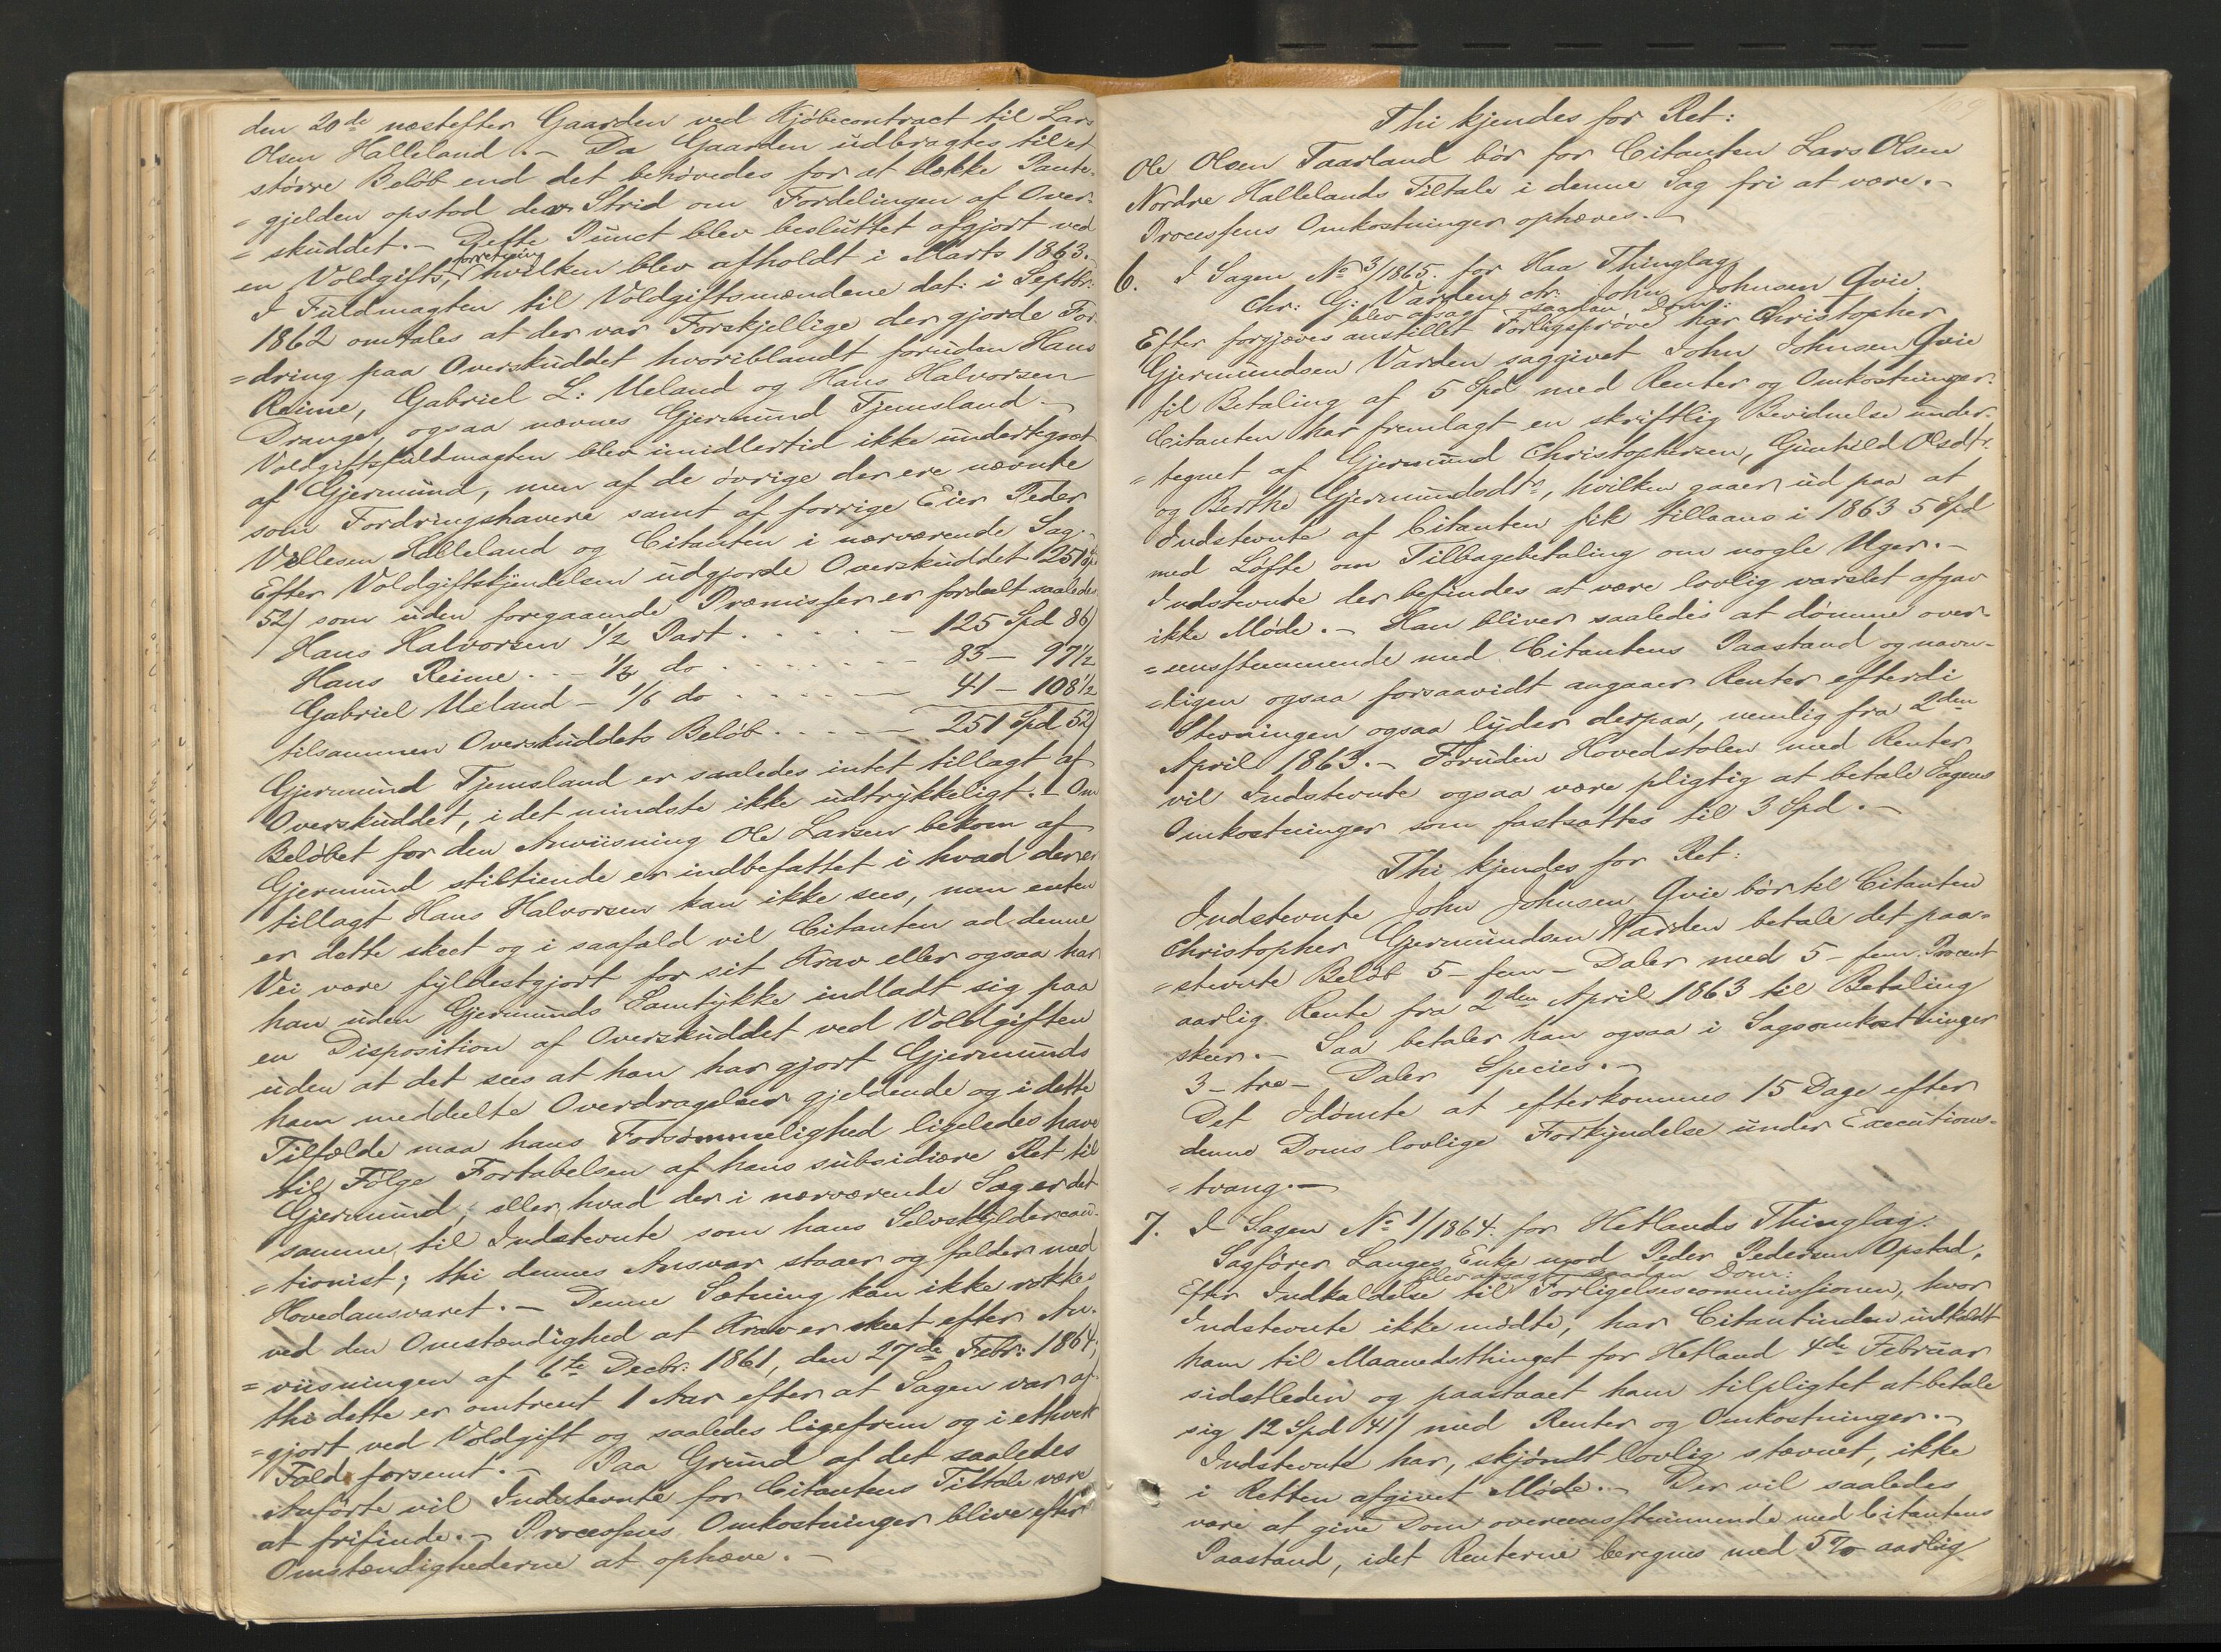 den 20de næstefter Gaarden ved Kjöbecontract til Lars
Olsen Halleland. – Da Gaarden udbragtes til et
större Belöb end det behövedes for at dække Pante-
=gjelden opstod der Strid om Fordelingen af Over-
=skuddet. – Dette Punct blev besluttet afgjort ved
en Voldgifts, forretning hvilken blev afholdt i Marts 1863. –
I Fuldmagten til Voldgiftsmændene dat: i Septbr:
1862 omtales at der var Forskjellige der gjorde For-
=dring paa Overskuddet hvoriblandt foruden Hans
Reime, Gabriel L: Ueland og Hans Halvorsen
Dranger, ogsaa nævnes Gjermund Tjemsland. –
Voldgiftsfuldmagten blev imidlertid ikke undertegnet
af Gjermund, men af de övrige der ere nævnte
som Fordringshavere samt af forrige Eier Peder
Villesen Halleland og Citanten i nærværende Sag. –
Efter Voldgiftskjendelsen udgjorde Overskuddet 251 Spd
52 som uden foregaaende Præmisser er fordeelt saaledes
Hans Halvorsen 1/2 Part . . . . . – 125 Spd 86
Hans Reime . . – 1/3 do . . . . . . . – 83 – 97 1/2
Gabriel Ueland – 1/6 do . . . . . . – 41 – 108 1/2
tilsammen Overskuddets Belöb . . . . – 251 Spd 52
Gjermund Tjemsland er saaledes intet tillagt af
Overskuddet, i det mindste ikke udtrykkeligt. – Om
Belöbet for den Anviisning Ole Larsen bekom af
Gjermund stiltiende er indbefattet i hvad der er
tillagt Hans Halvorsen kan ikke sees, men enten
er dette skeet og i saafald vil Citanten ad denne
Vei være fyldestgjort for sit Krav eller ogsaa har
han uden Gjermunds Samtykke indladt sig paa
en Disposition af Overskuddet ved Voldgiften
uden at det sees at han har gjort Gjermunds
ham meddeelte Overdragelser gjeldende og i dette
Tilfælde maa hans Forsömmelighed ligeledes have
til Fölge Fortabelsen af hans subsidiære Ret til
Gjermund, eller, hvad der i nærværende Sag er det
samme, til Indstevnte som hans Selvskyldercau-
=tionist; thi dennes Ansvar staaer og falder med
Hovedansvaret. – Denne Sætning kan ikke rokkes
ved den Omstændighed at Krav er skeet efter An-
=viisningen af 6te Decbr: 1861, den 27de Febr: 1864,
thi dette er omtrent 1 Aar efter at Sagen var af-
=gjort ved Voldgift og saaledes ligefrem og i ethvert
Fald forsent. – Paa Grund af det saaledes
Anförte vil Indstevnte for Citantens Tiltale være
at frifinde. – Processens Omkostninger blive efter
Omstændighederne at ophæve. –
169
Thi kjendes for Ret:
Ole Olsen Taarland bör for Citanten Lars Olsen
Nordre Hallelands Tiltale i denne Sag fri at være. –
Processens Omkostninger ophæves. –
6. I Sagen No 3/1865. for Haa Thinglag
Chr: G: Varden ctr: John Johnsen Qvie
blev afsagt saadan Dom:
Efter forgjæves anstillet Forligspröve har Christopher
Gjermundsen Varden saggivet John Johnsen Qvie
til Betaling af 5 Spd med Renter og Omkostninger.
Citanten har fremlagt en skriftlig Bevidnelse under-
=tegnet af Gjermund Christophersen, Gunhild Olsdtr
og Berthe Gjermundsdtr, hvilken gaaer ud paa at
Indstevnte af Citanten fik tillaans i 1863 5 Spd
med Löfte om Tilbagebetaling om nogle Uger. –
Indstevnte der befindes at være lovlig varslet afgav
ikke Möde. – Han bliver saaledes at dömme over-
=eensstemmende med Citantens Paastand og navn-
=ligen ogsaa forsaavidt angaaer Renter efterdi
Stevningen ogsaa lyder derpaa, nemlig fra 2den
April 1863. – Foruden Hovedstolen med Renter
vil Indstevnte ogsaa være pligtig at betale Sagens
Omkostninger som fastsættes til 3 Spd. –
Thi kjendes for Ret:
Indstevnte John Johnsen Qvie bör til Citanten
Christopher Gjermundsen Warden betale det paa-
=stevnte Belöb 5 – fem – Daler med 5 – fem Procent
aarlig Rente fra 2den April 1863 til Betaling
skeer. – Saa betaler han ogsaa i Sagsomkostninger
3 – tre – Daler Species. –
Det Idömte at efterkommes 15 Dage efter
denne Doms lovlige Forkyndelse under Executions-
=tvang. –
7. I Sagen No 1/1864. for Hetlands Thinglag.
Sagförer Langes Enke mod Peder Pedersen Opstad,
blev afsagt saadan Dom:
Efter Indkaldelse til Forligelsescommissionen, hvor
Indstevnte ikke mödte, har Citantinden indkaldt
ham til Maanedsthinget for Hetland 4de Februar
sidstleden og paastaaet ham tilpligtet at betale
sig 12 Spd 41 med Renter og Omkostninger. –
Indstevnte har, skjöndt lovlig stævnet, ikke
i Retten afgivet Möde. – Der vil saaledes
være at give Dom overeensstemmende med Citantens
Paastand, idet Renterne beregnes med 5% aarlig